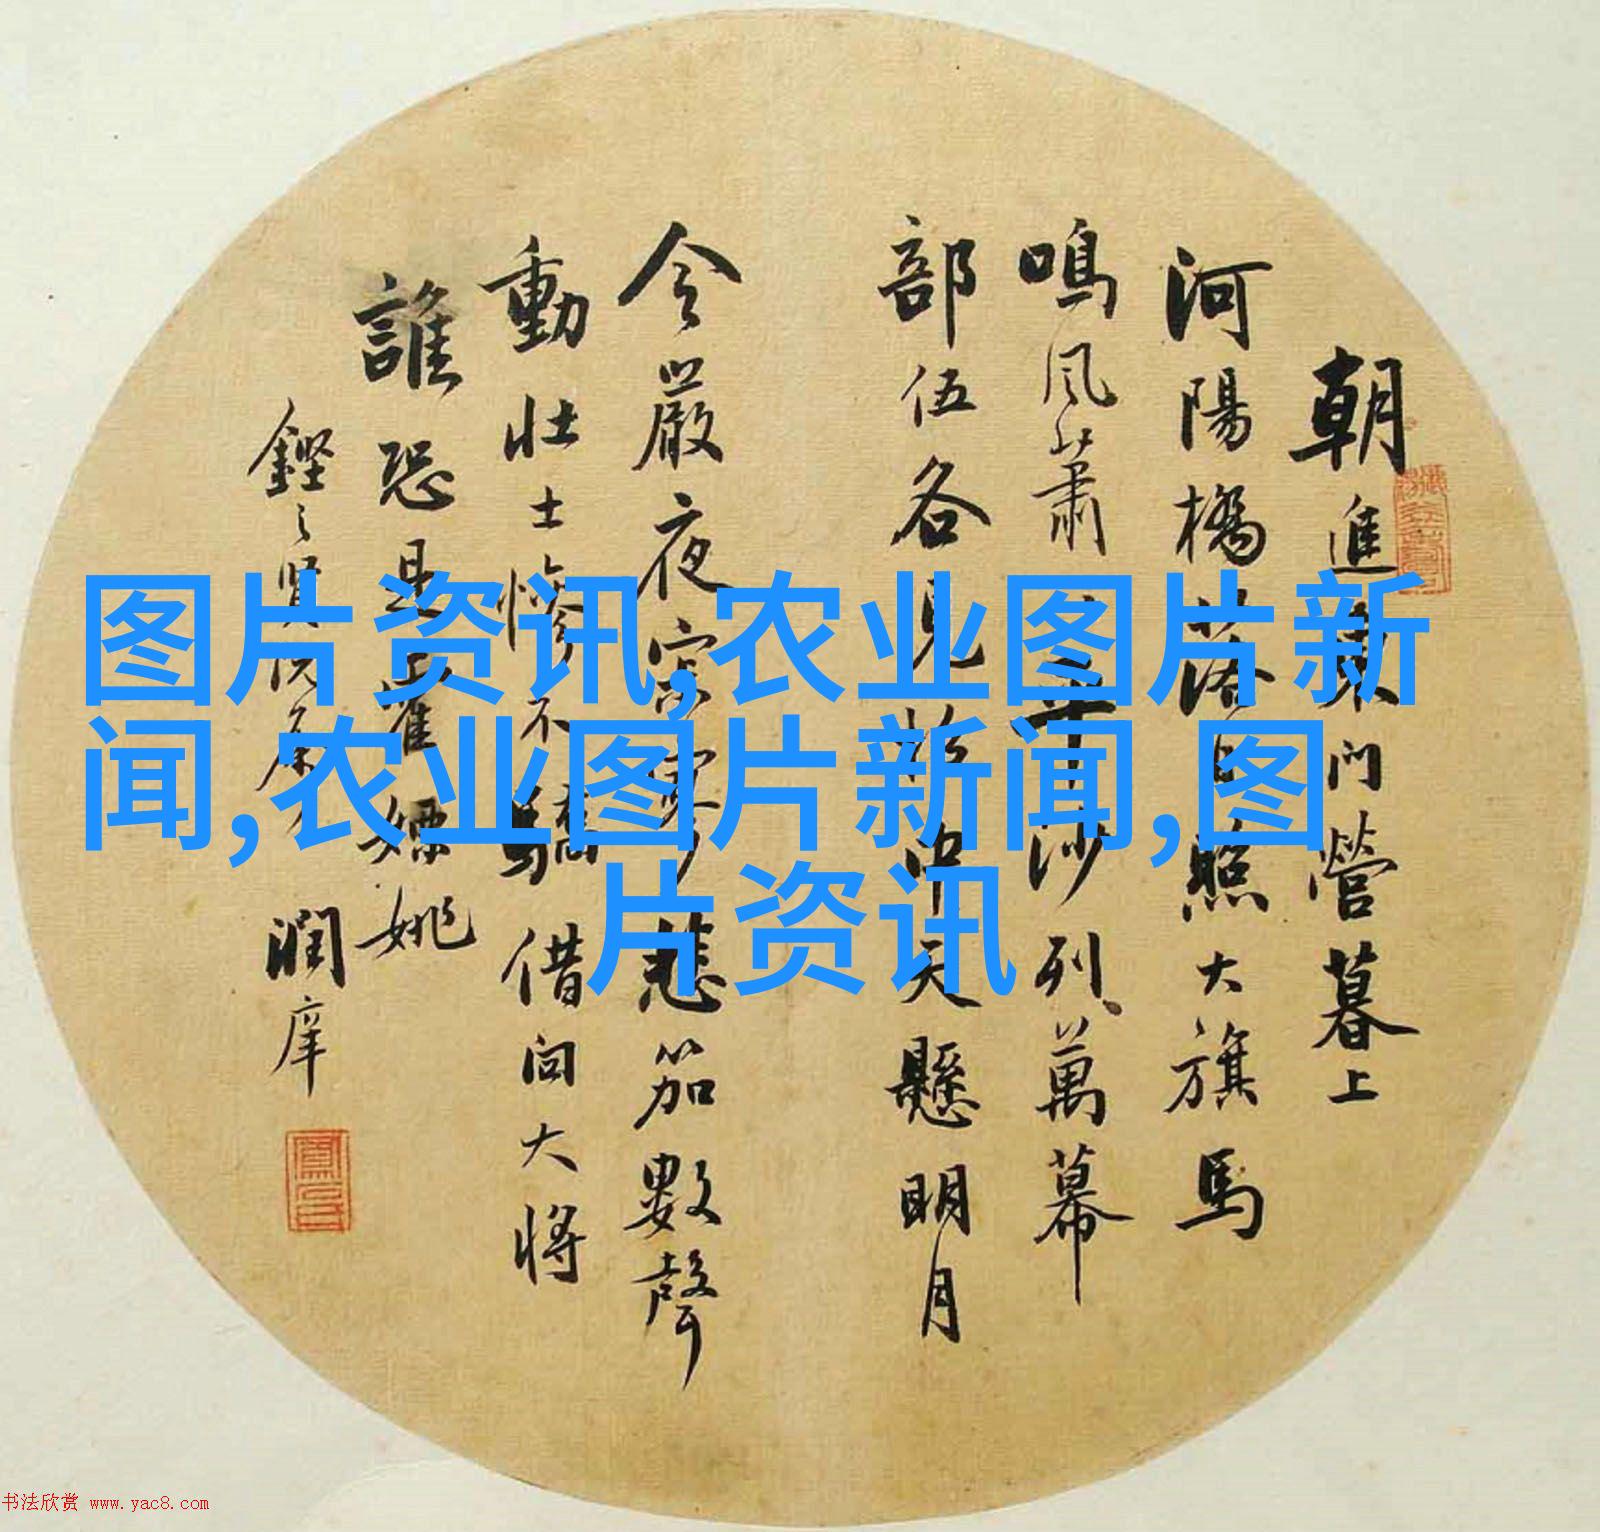 朝進東門營暮上
河陽橋落日照大旗馬
鳴風蕭平沙列萬幕
部伍各見招中天懸明月
令嚴夜寂寥悲笳數聲
動壯士慘不驕借問大將
誰恐是霍嫖姚
鏗之賢 潤庠
图片资讯,农业图片新
闻,农业图片新闻,图
片资讯
书法欣赏 www.yac8.com